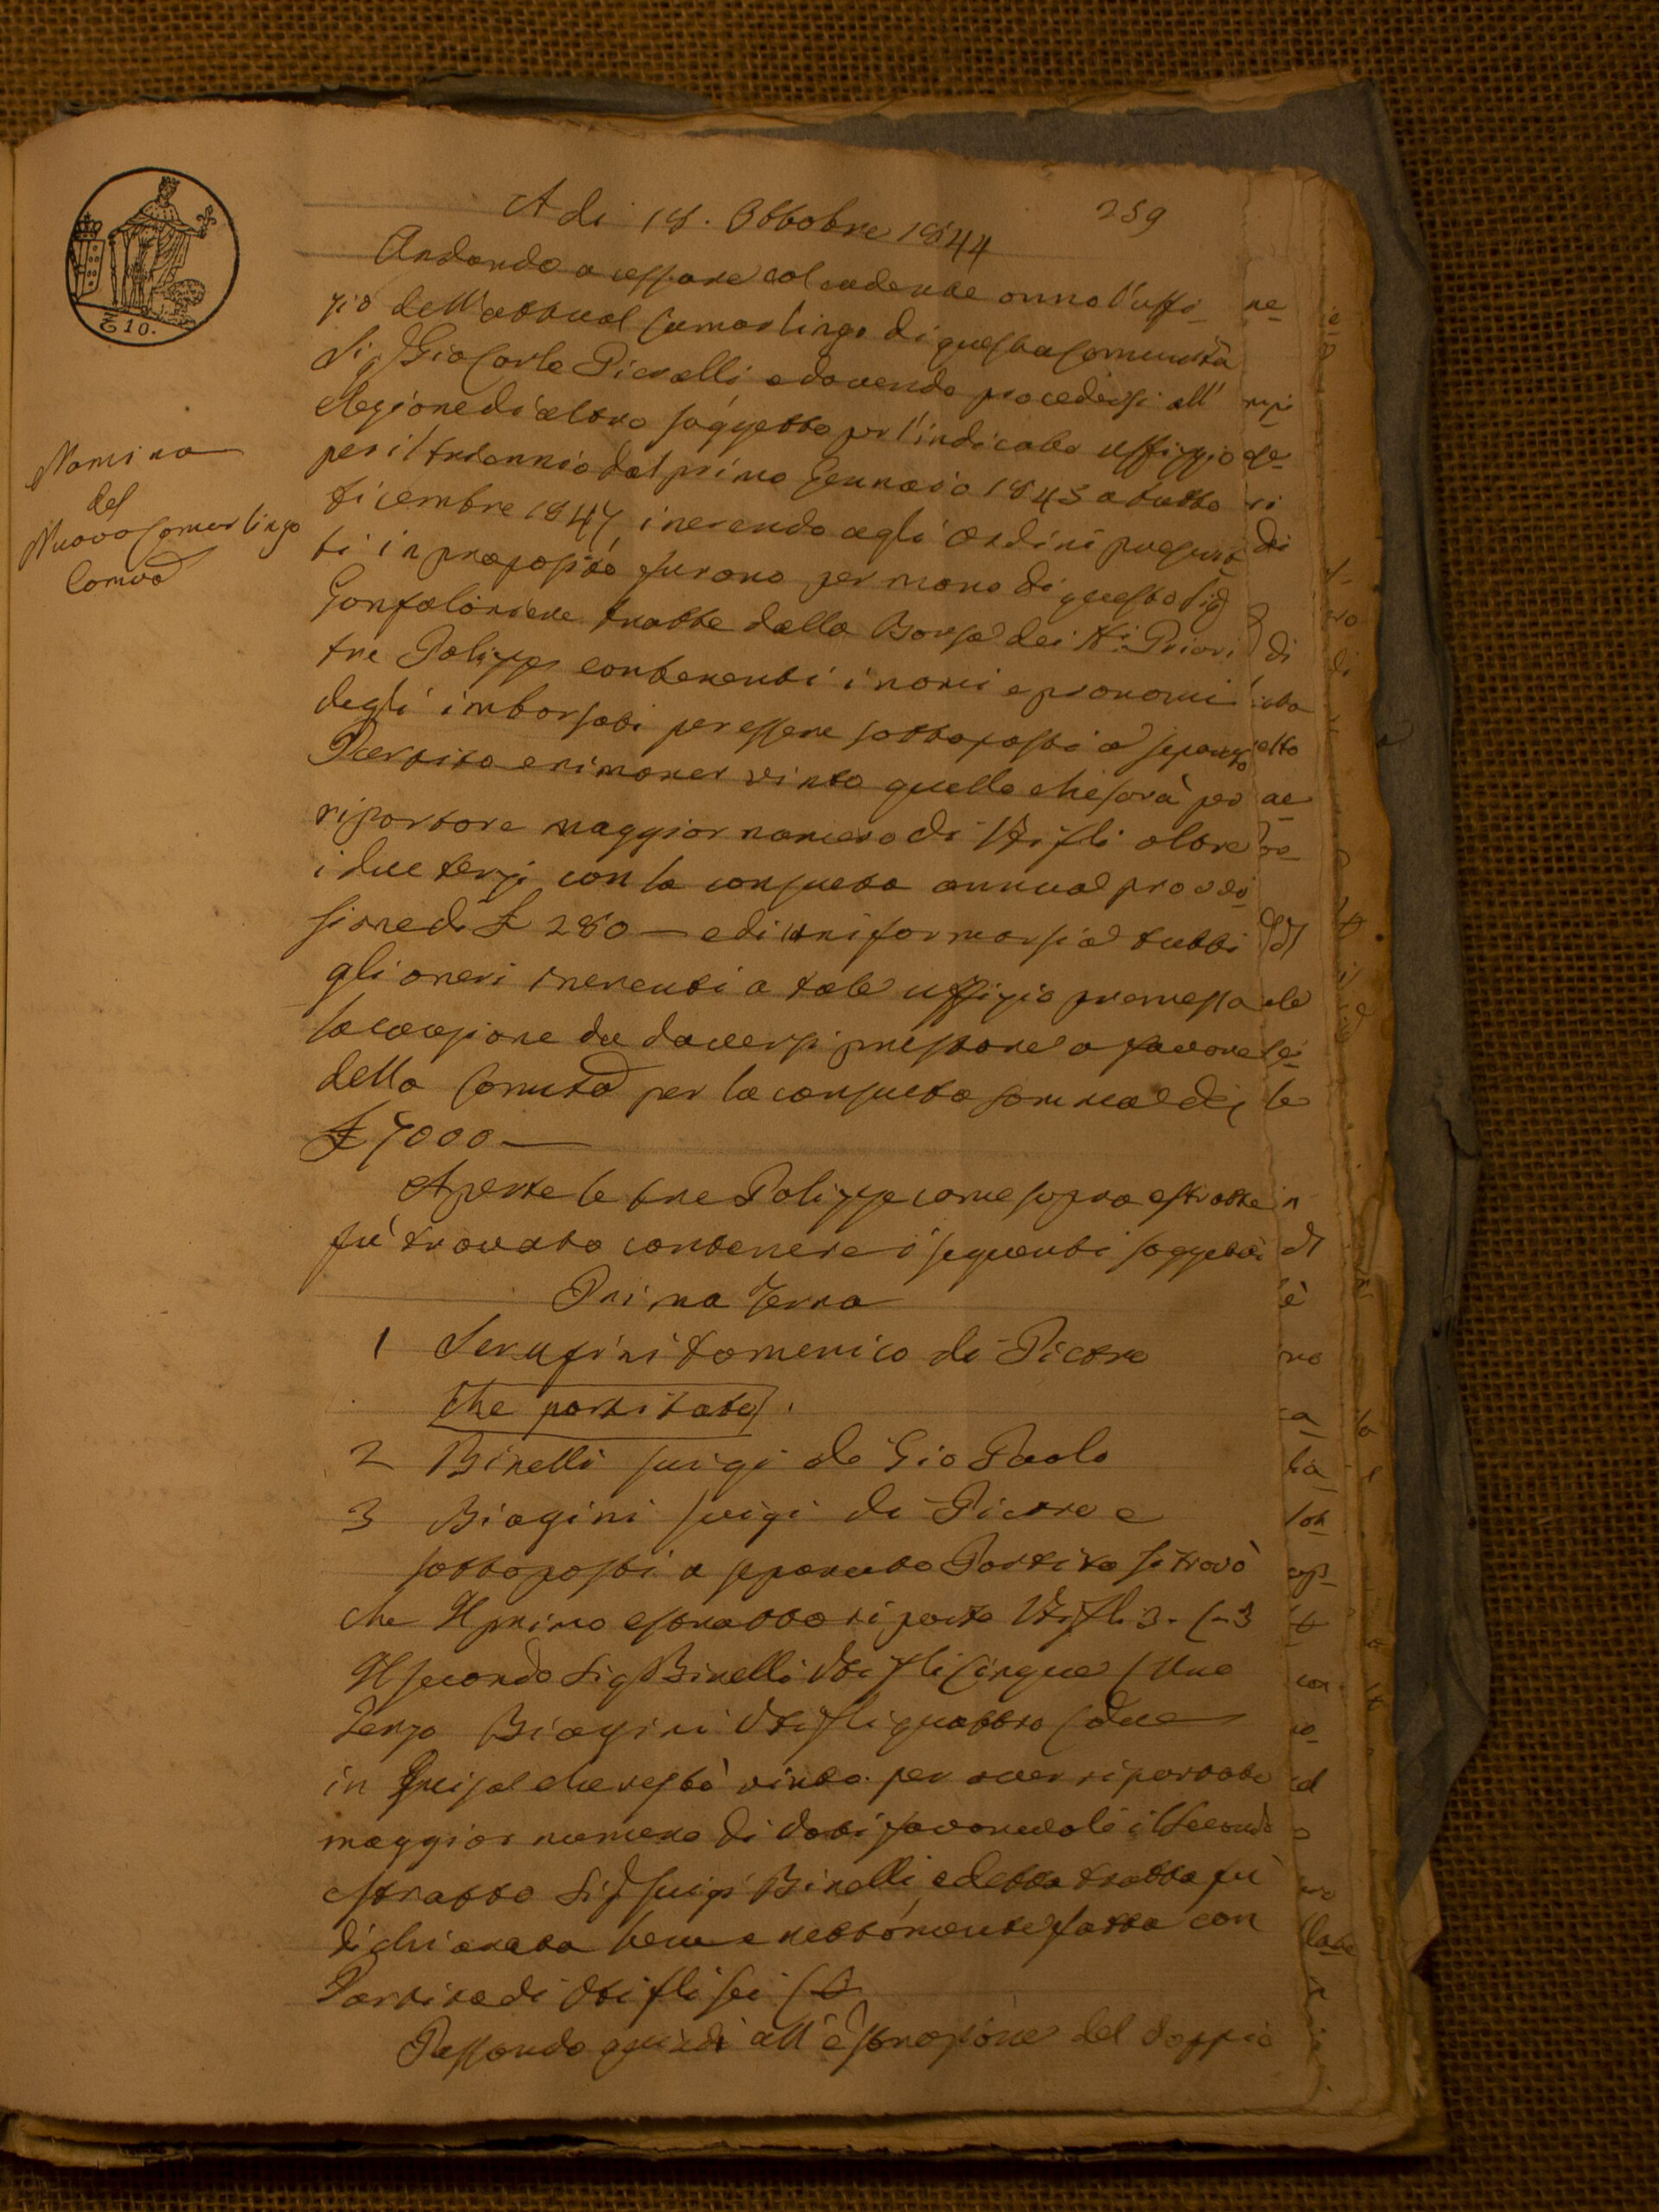 259
A di 18. Ottobre 1844
Andando a cessare col cadente anno l'uffi-
zio dell'attual Camarlingo di questa Comunità
Sig Gio Carlo Picealli e dovendo procedersi all'
elezione di altro soggetto per l'indicato uffizzio
per il triennio dal primo Gennaio 1845 a tutto
Dicembre 1847, inerendo agli Ordini
ti in proposito furono per mano di questo Sig
Gonfaloniere tratte dalla Borsa dei Priori
tre Polizze contenenti i nomi e pronomi
degli imborsati per essere sottoposti a separato
Partito e rimaner vinto quello che sarà per
riportare maggior numero di Voti fli oltre
i due terzi con la consueta annual provvi
sione di £ 280 — e di uniformarsi a tutti
gli oneri inerenti a tale uffizio premessa
la cauzione da doversi prestare a favore
della Comutà per la consueta somma di
£ 7000 —
Aperte le tre Polizze come sopra estratte
fu trovato contenere i seguenti soggetti
Prima Terna
1 Serafini Domenico di Pietro
che partitato.
2 Binelli Luigi di Gio Paolo
3 Biagini Luigi di Pietro e
sottoposti a separato Partito si trovò
che Il primo estratto riportò Voti fli 3. C. 3
Il secondo Sig Binelli Voti fli Cinque C Uno
Terzo Biagini Voti fli quattro C due
in Guisa che restò vinto per aver riportato
maggior numero di Voti favorevoli il Secondo
estratto Sig Luigi Binelli, e detta tratta fu
dichiarata bene e nettamente fatta con
Partito di Voti fli sei C 0
Passando quindi all'estrazione del doppio
Nomina
del
Nuovo Camarlingo
Comvo
10.